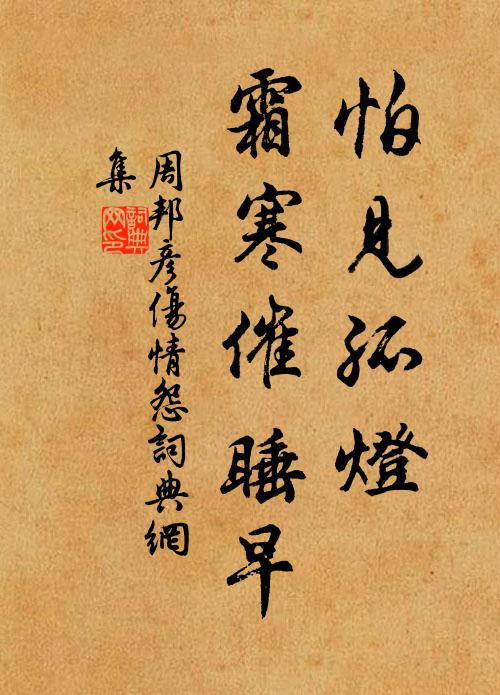 怕見孤燈
霜寒催睡早
周邦彥傷情怨詞典網
集
詞典
网印